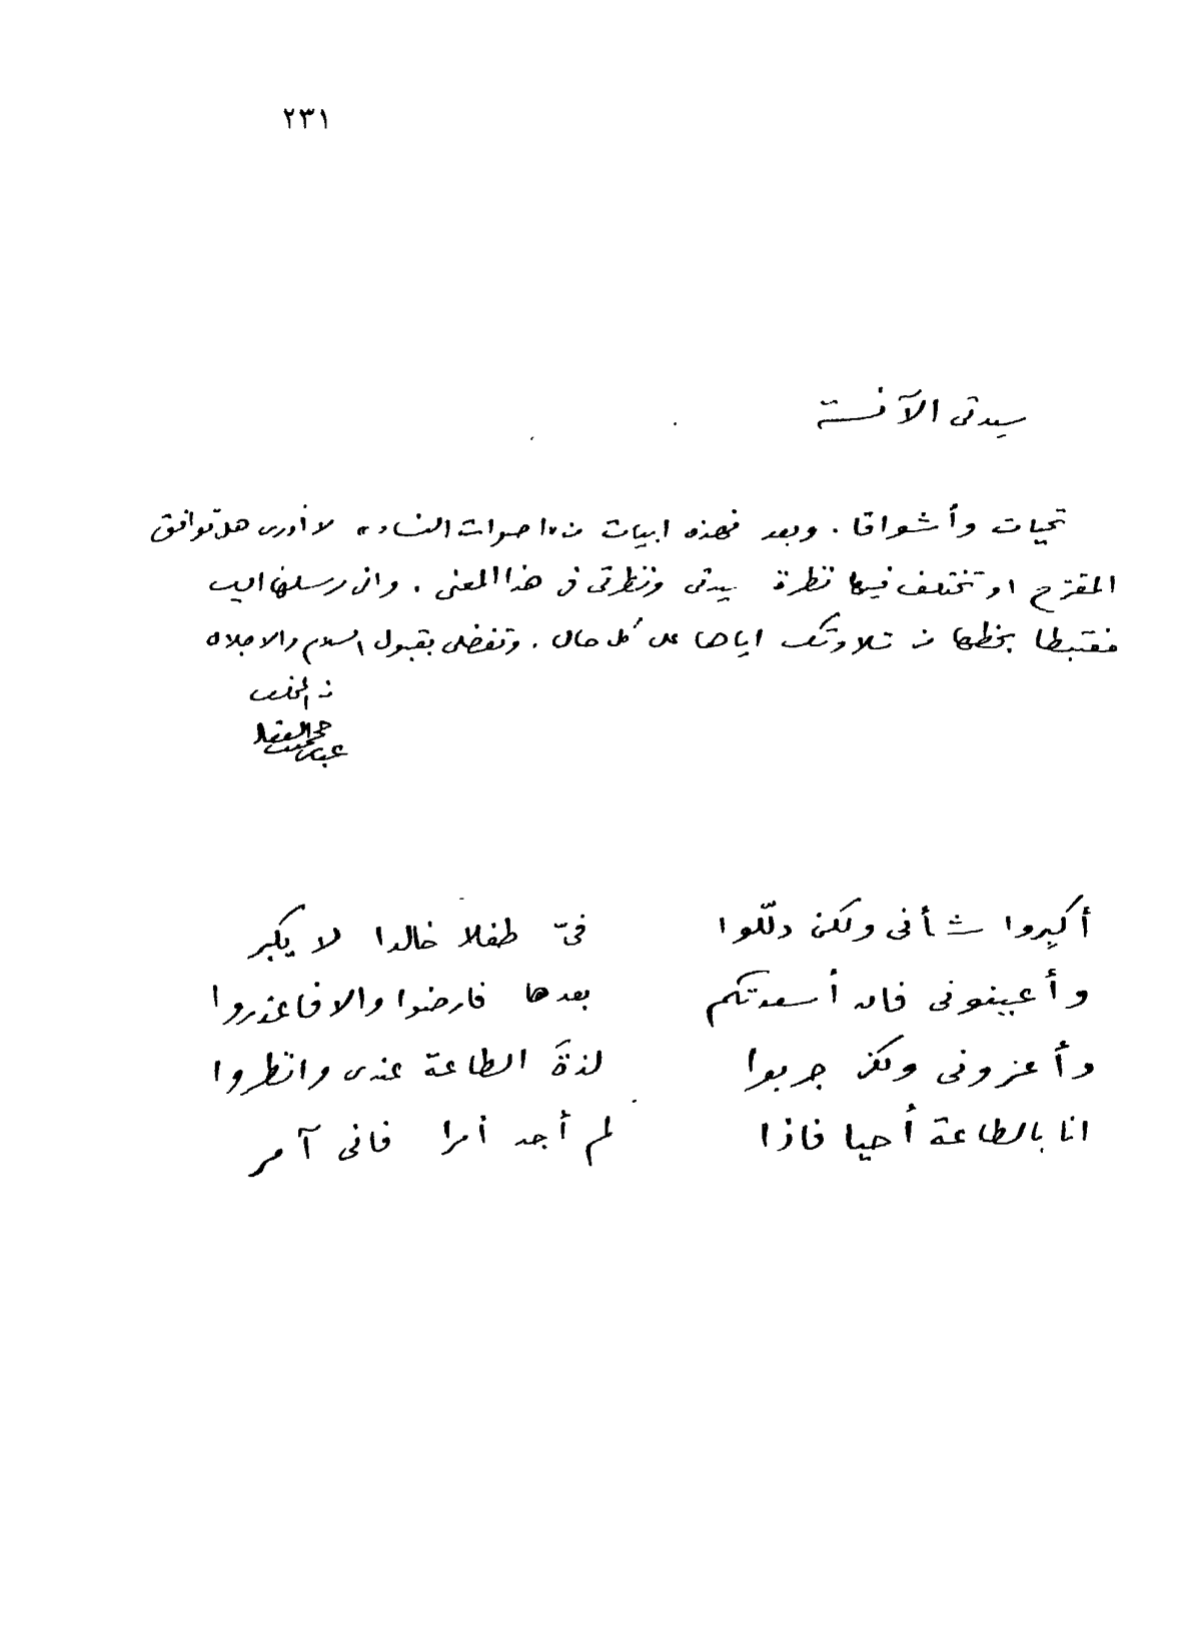 ٢٣١
سيدتى الآنسة
تحيات وأشواقا . وبعد فهذه ابيات من " اصوات النساء " لا أدرى هل توافق
المقترح او تختلف فيها نظرة سيدتى ونظرتى فى هذا المعنى . وانى مرسلها اليك
مغتبطا بحظها من تلاوتك اياها على كل حال . وتفضلى بقبول السلام والاجلال
من المخلص
عباس محمود العقاد
أكبروا شأنى ولكن دللّوا فىّ طفلا خالدا لا يكبر
وأعينونى فان أسعدتكم بعدها فارضوا والا فاعذروا
وأعزونى ولكن جربوا لذةَ الطاعة عندى وانظروا
انا بالطاعة أُحيا فاذا لم أجد أمرا فانى آمر